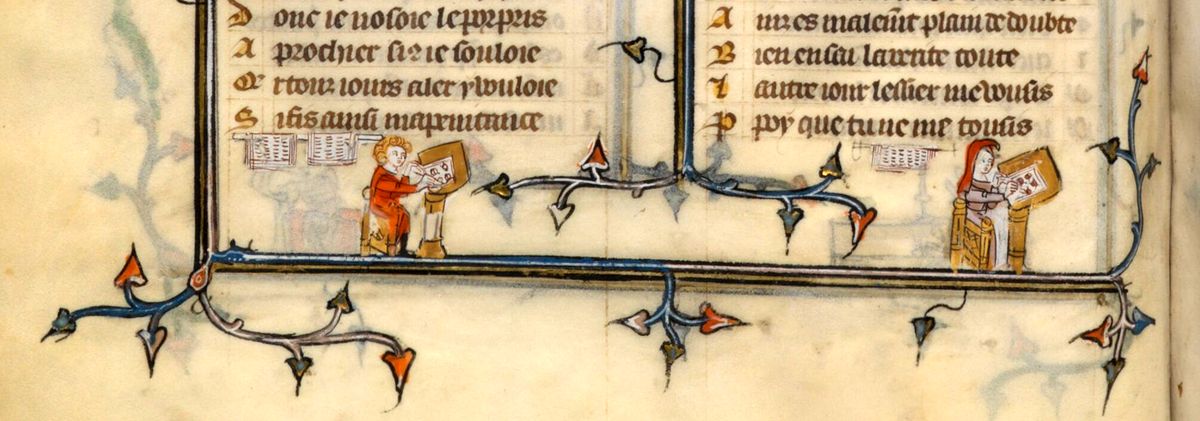 Donc ie nosoie le porpris
Aprochier si q ie souloie
Or touz iours aler y vouloie
Si fis ainsi ma penitance
Aures malemt plain de doubte
Bien en sai la verite toute
Lautre iour lessier me vousis
Por poy que tu ne me tousis